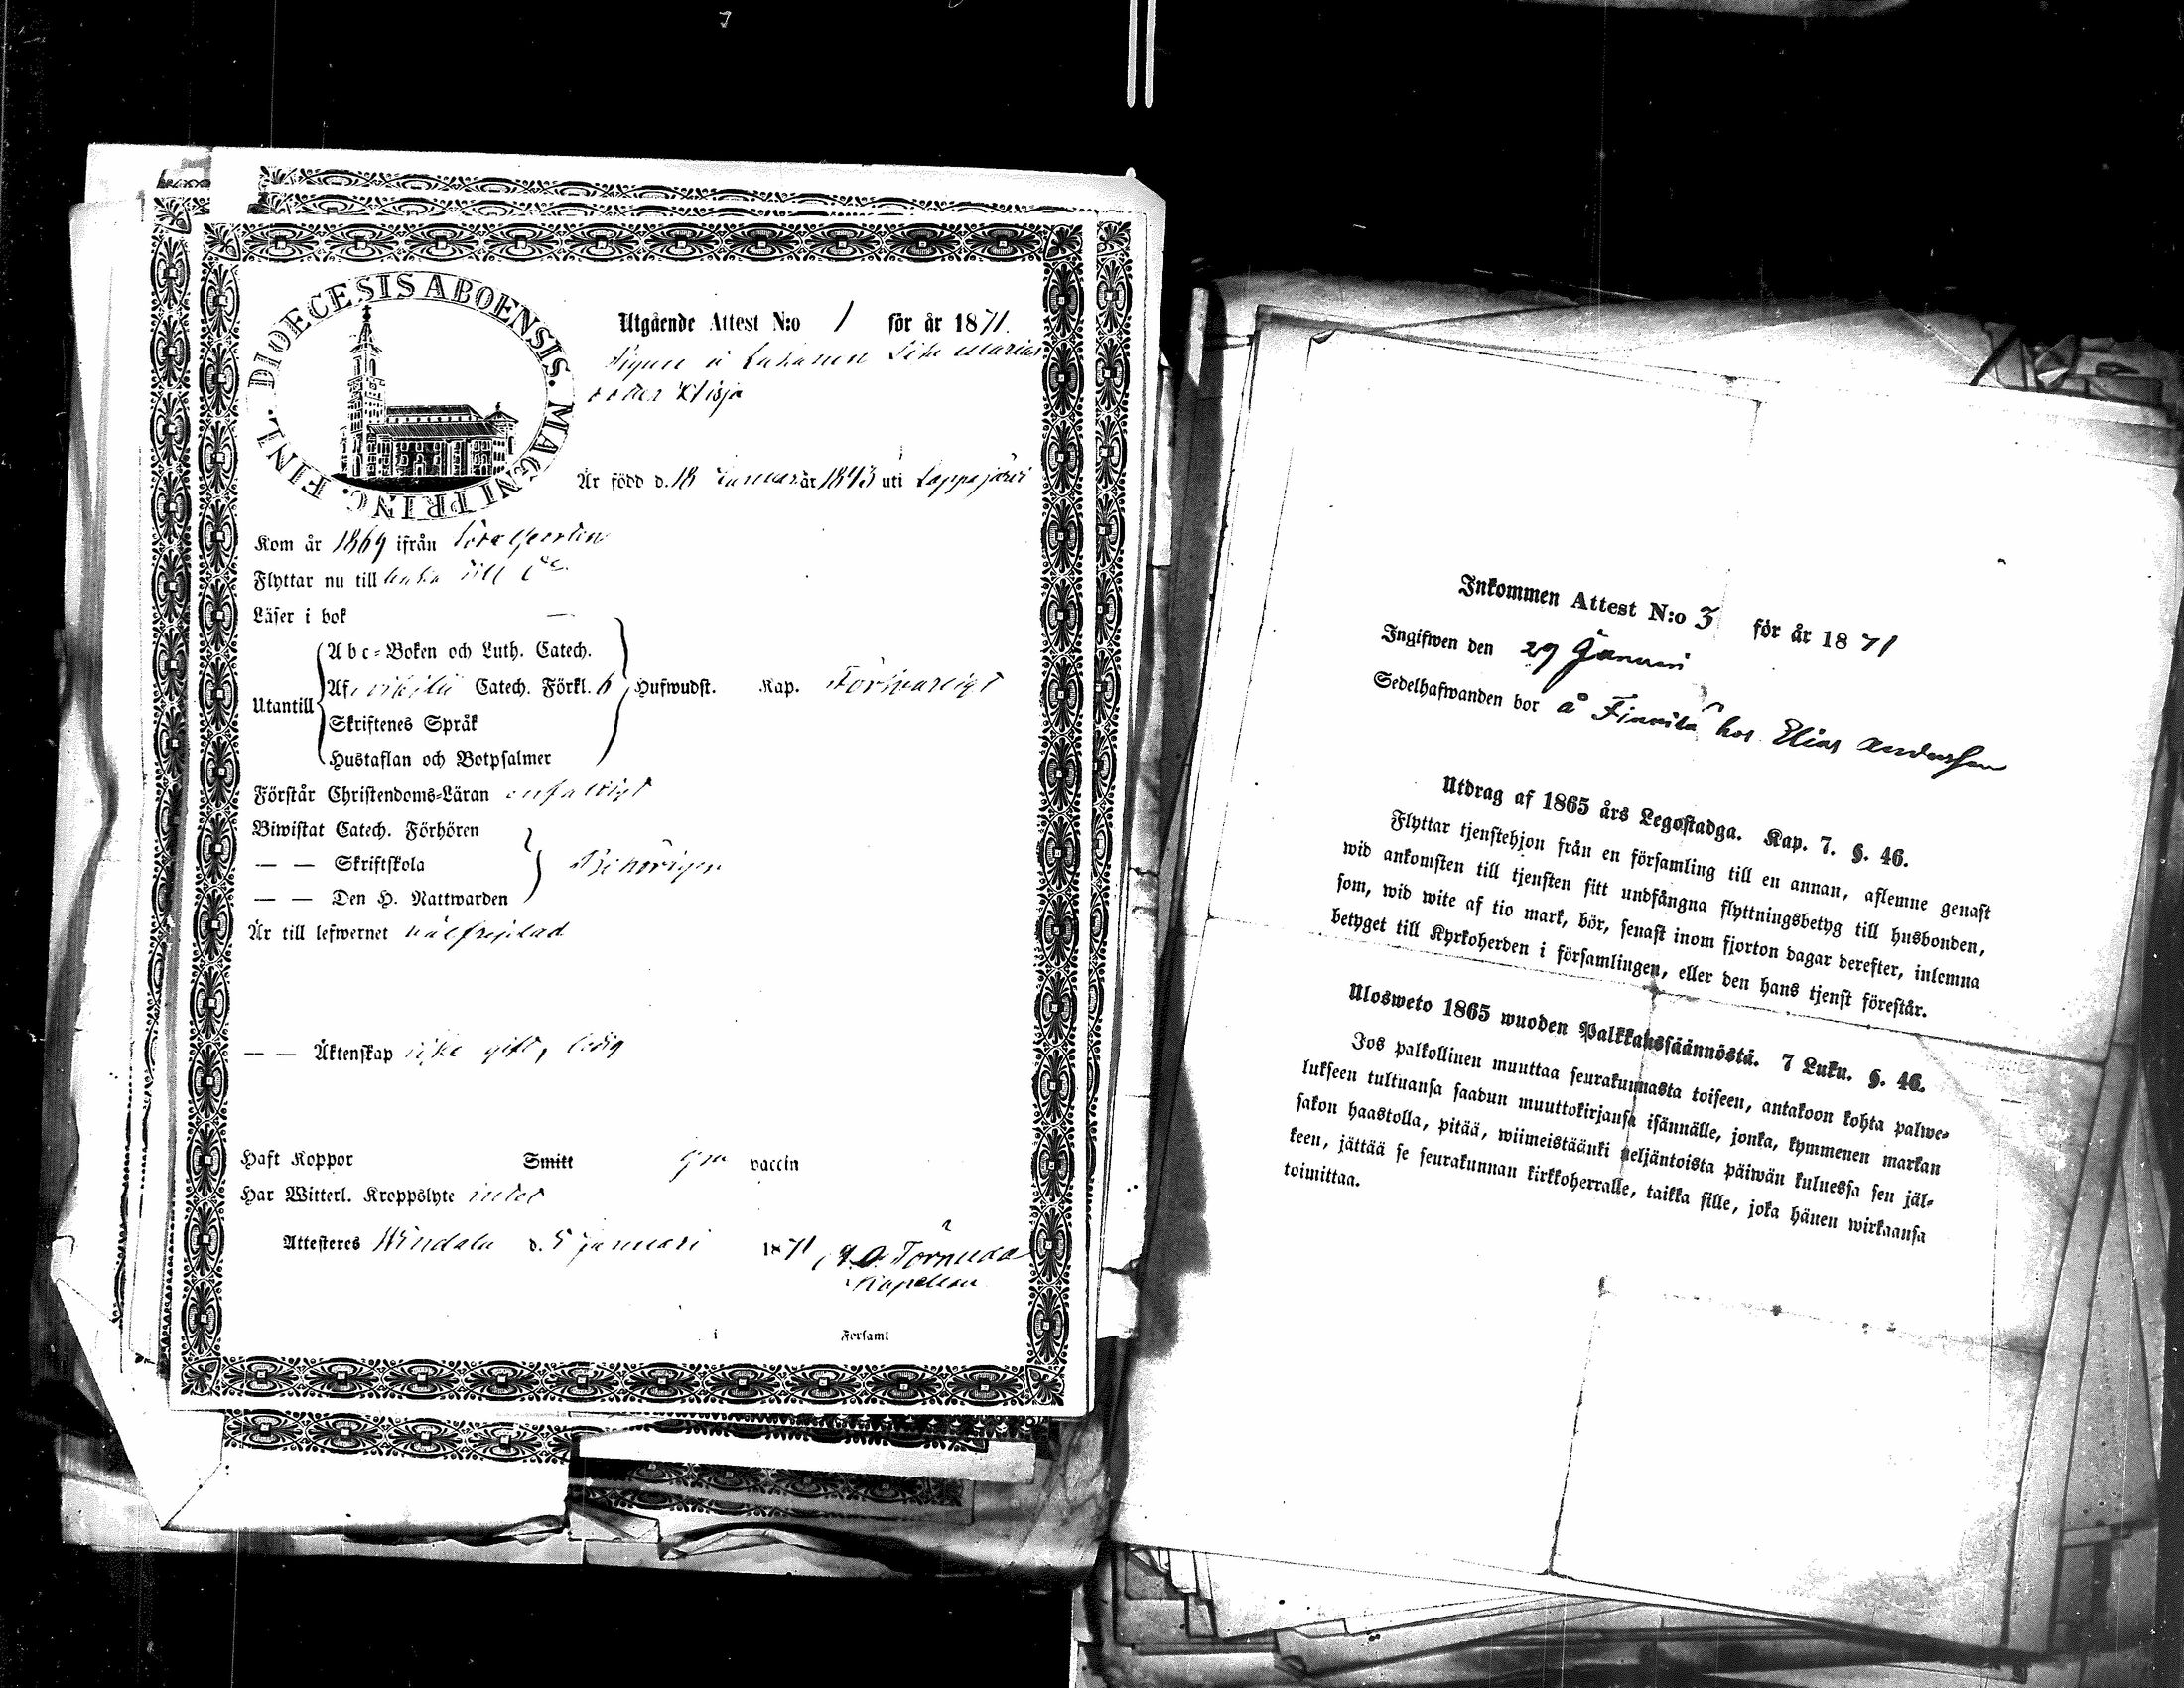 DIOECESIS ABOENSIS. MAGNI PRINC. FINL.
Utgående Attest N:o 1 för år 1871.
Pigan
Är född d. 18 Januari år 1843 uti Lappajärvi
Kom år 1869 ifrån
Flyttar nu till
Läser i bok —
Utantill
Abc-Boken och Luth. Catech.
Af Catech. Förkl. 6 Hufwudst. Kap. Förswarligt
Skriftenes Språk
Hustaflan och Botpsalmer
Förstår Christendoms-Läran enfaldigt
Biwistat Catech. Förhören
— — Skriftskola Behörigen
— — Den H. Nattwarden
Är till lefwernet wälfrejdad
— — Äktenskap icke gift, ledig
Haft Koppor Smitt gm vaccin
Har Witterl. Kroppslyte intet
Attesteres Windala d. 5 januari 1871 Törnudd
Kapellan
i Församl
Inkommen Attest N:o 3 för år 1871
Ingifwen den 29 Januari
Sedelhafwanden bor å Finnilä hos Elias Andersson
Utdrag af 1865 års Legostadga. Kap. 7. §. 46.
Flyttar tjenstehjon från en församling till en annan, aflemne genast
wid ankomsten till tjensten sitt undfångna flyttningsbetyg till husbonden,
som, wid wite af tio mark, bör, senast inom fjorton dagar derefter, inlemna
betyget till Kyrkoherden i församlingen, eller den hans tjenst förestår.
Ulosweto 1865 wuoden Palkkaussäännöstä. 7 Luku. §. 46.
Jos palkollinen muuttaa seurakunnasta toiseen, antakoon kohta palwe-
lukseen tultuansa saadun muuttokirjansa isännälle, jonka, kymmenen markan
sakon haastolla, pitää, wiimeistäänki neljäntoista päiwän kuluessa sen jäl-
keen, jättää se seurakunnan kirkkoherralle, taikka sille, joka hänen wirkaansa
toimittaa.